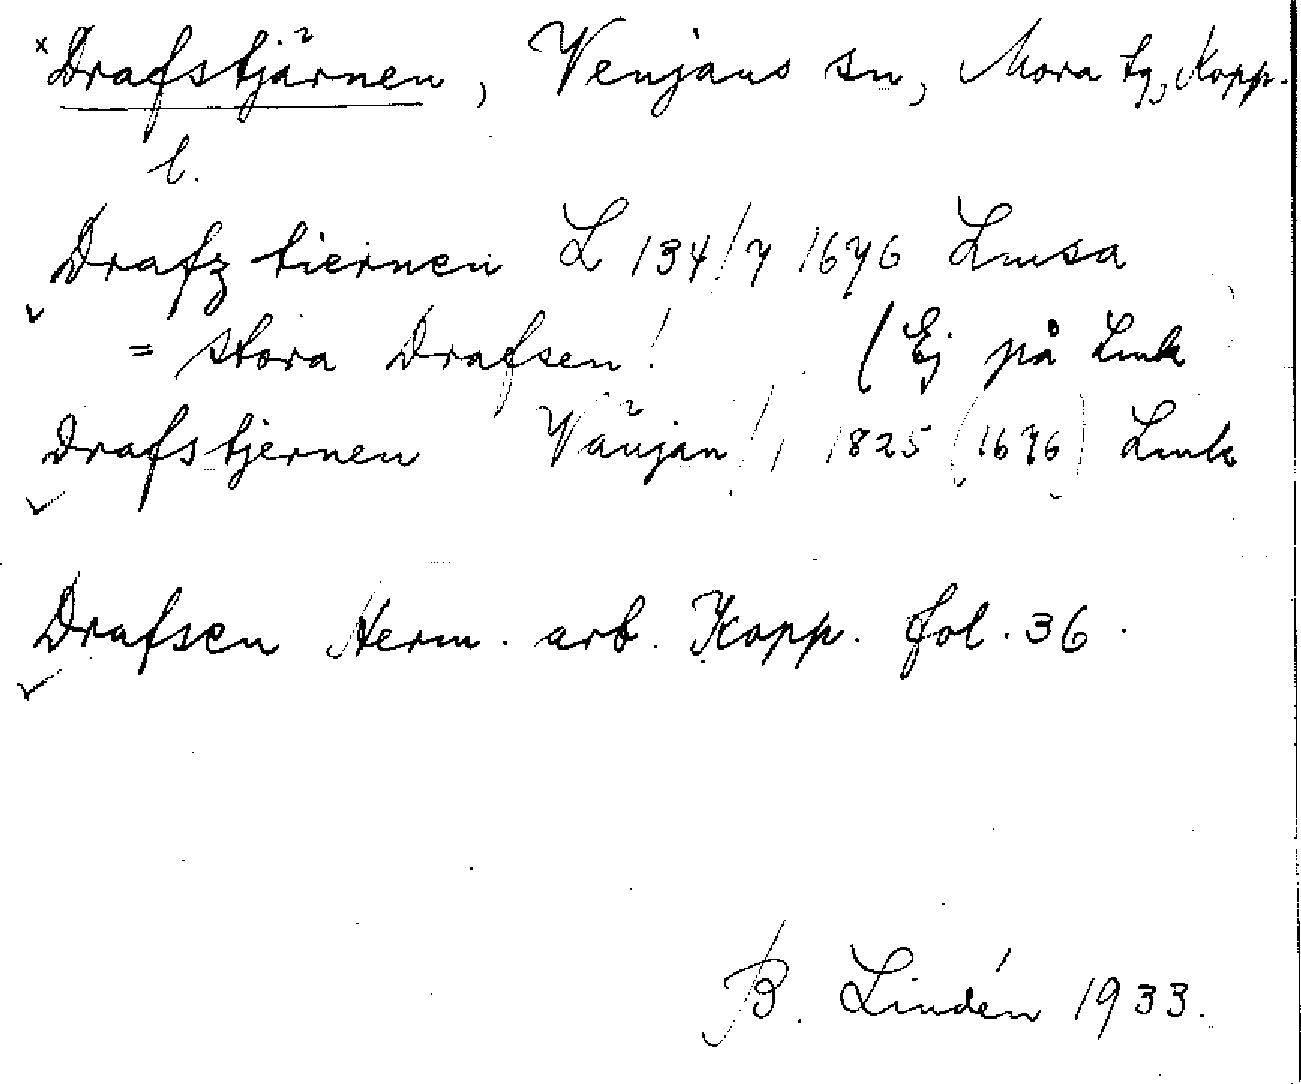 x Drafstjärnen, Venjans sn, Mora tg, Kopp.
l.
Drafz tiernen L 134/7 1676 Lmsa
= stora Drafsen! (Ej på Lmk)
Drafstjernen Vänjan!, 1825 (1676) Lmk
Drafsen Herm. arb. Kopp. fol. 36.
B. Lindén 1933.